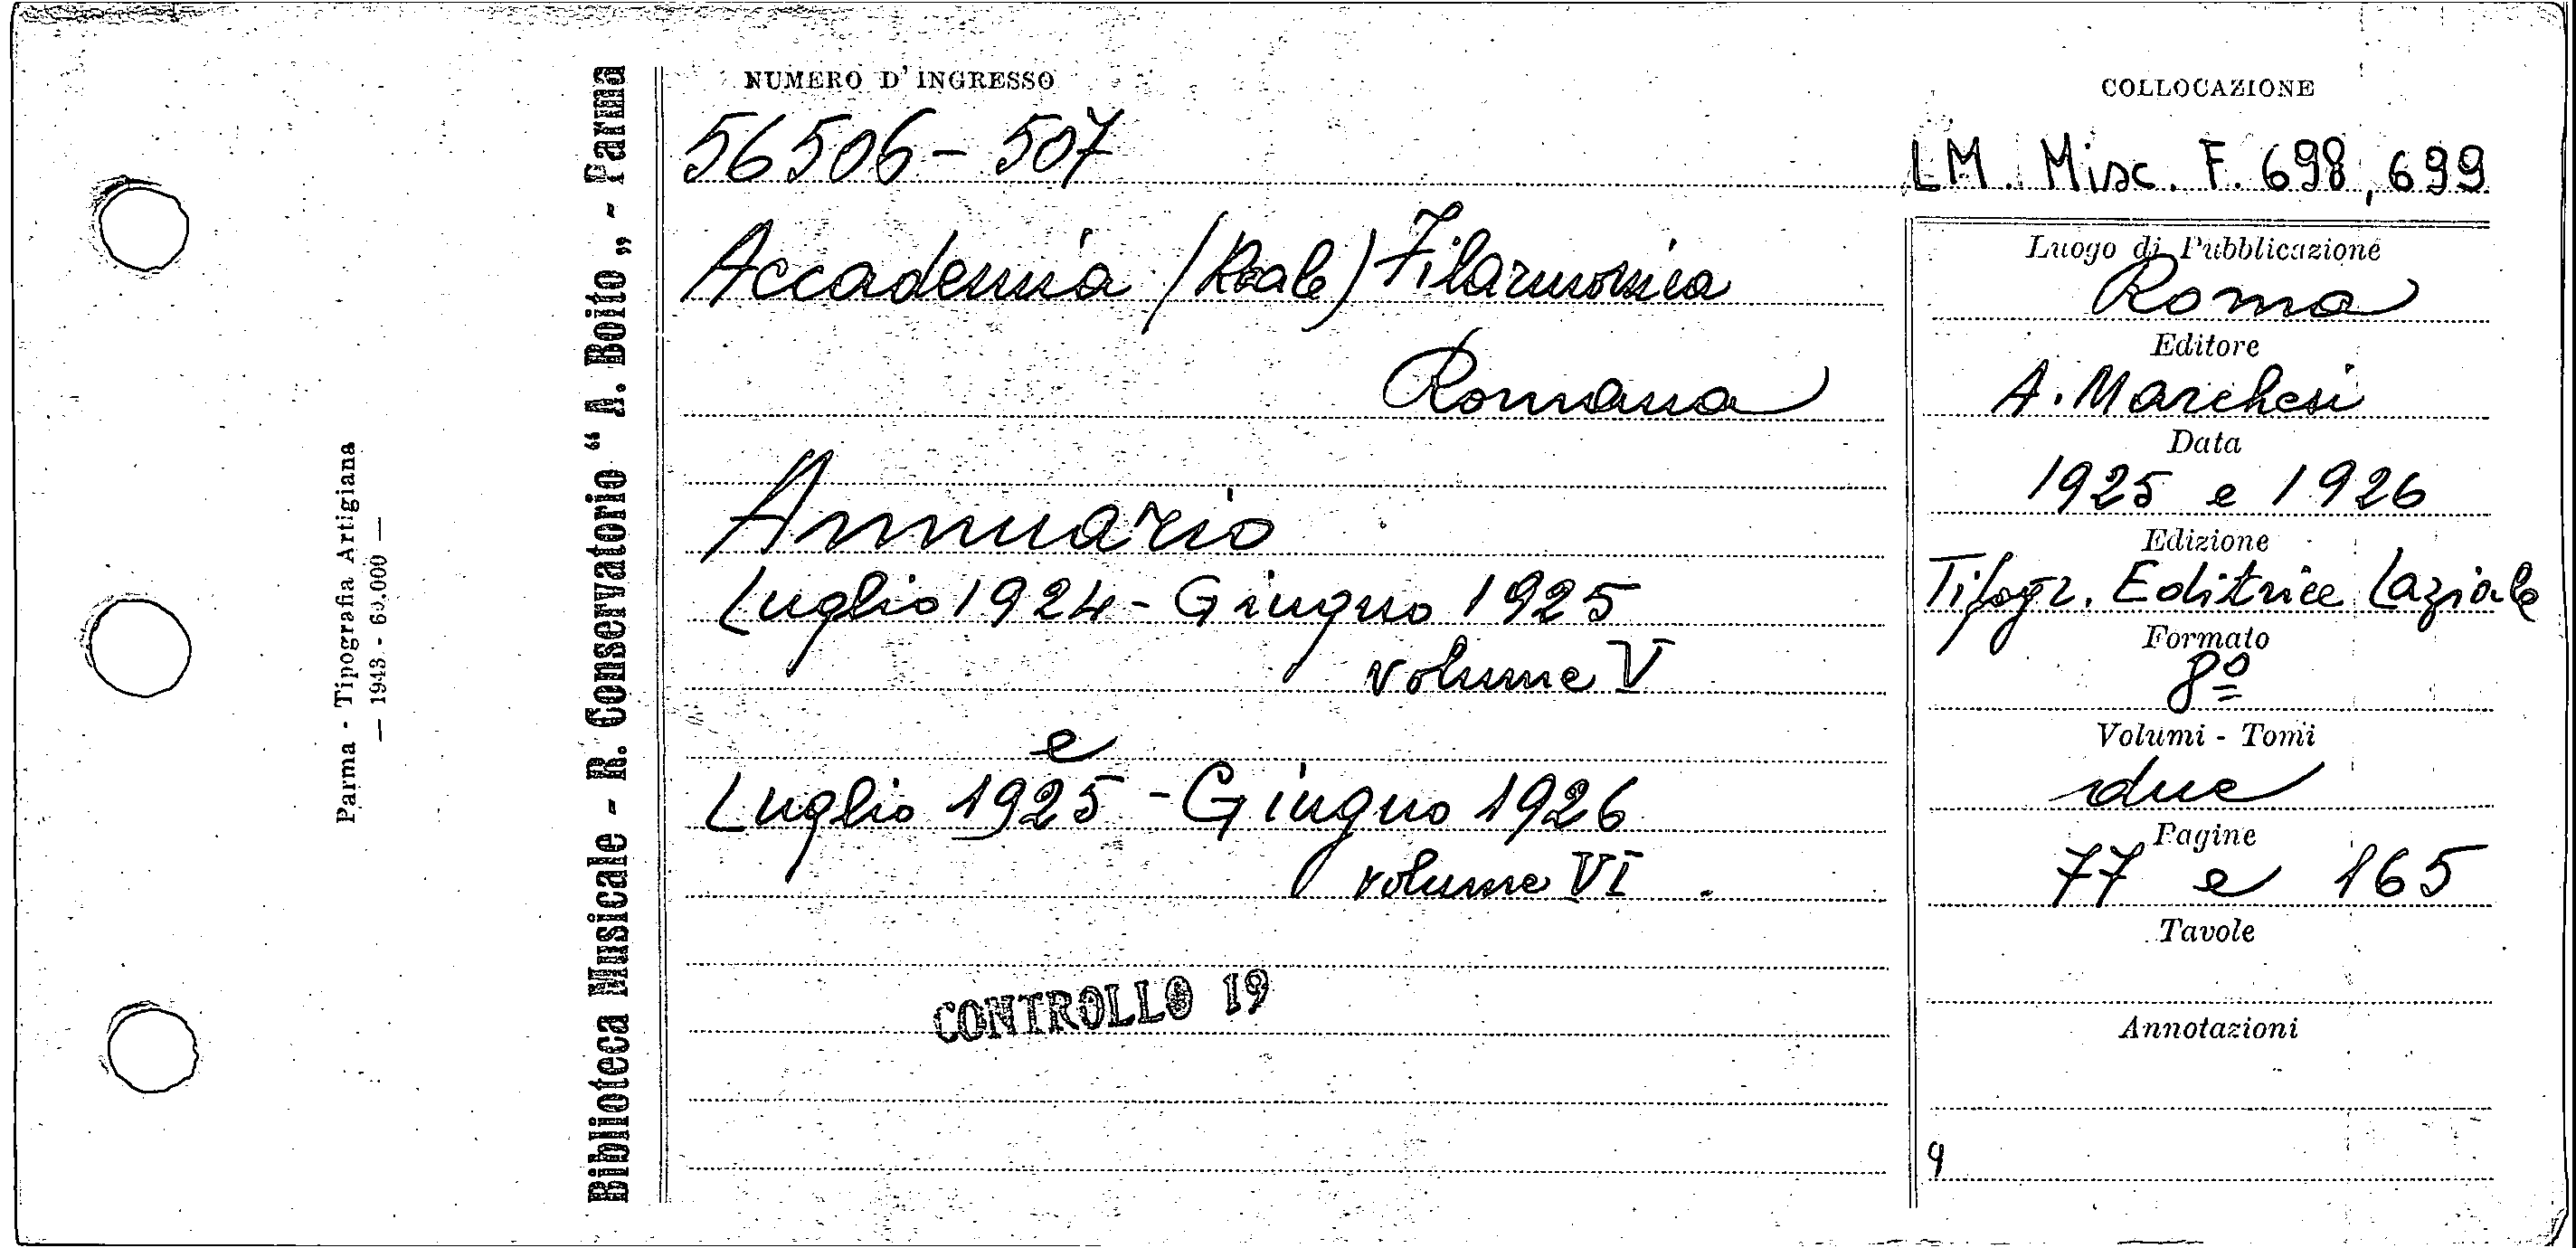 Parma - Tipografia Artigiana
— 1943 - 60.000 —
Biblioteca Musicale - R. Conservatorio “ A. Boito „ - Parma
NUMERO D' INGRESSO
56506 - 507
Accademia (Reale) Filarmonica
Romana
Annuario
Luglio 1924 - Giugno 1925
volume V
e
Luglio 1925 - Giugno 1926
volume VI .
CONTROLLO 19
COLLOCAZIONE
LM. Misc. F. 698, 699
Luogo di Pubblicazione
Roma
Editore
A. Marchesi
Data
1925 e 1926
Edizione
Tipogr. Editrice Laziale
Formato
8º
Volumi - Tomi
due
Pagine
77 e 165
Tavole
Annotazioni
9